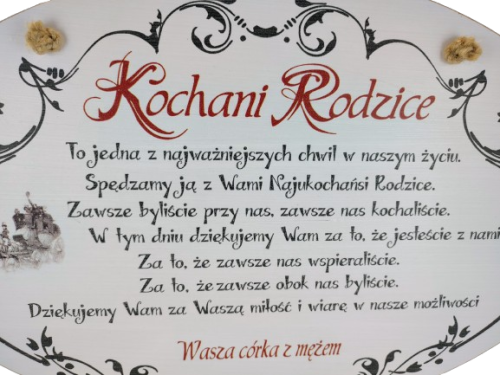 Kochani Rodzice
To jedna z najważniejszych chwil w naszym życiu.
Spędzamy ją z Wami Najukochańsi Rodzice.
Zawsze byliście przy nas, zawsze nas kochaliście.
W tym dniu dziękujemy Wam za to, że jesteście z nami
Za to, że zawsze nas wspieraliście.
Za to, że zawsze obok nas byliście.
Dziękujemy Wam za Waszą miłość i wiarę w nasze możliwości
Wasza córka z mężem